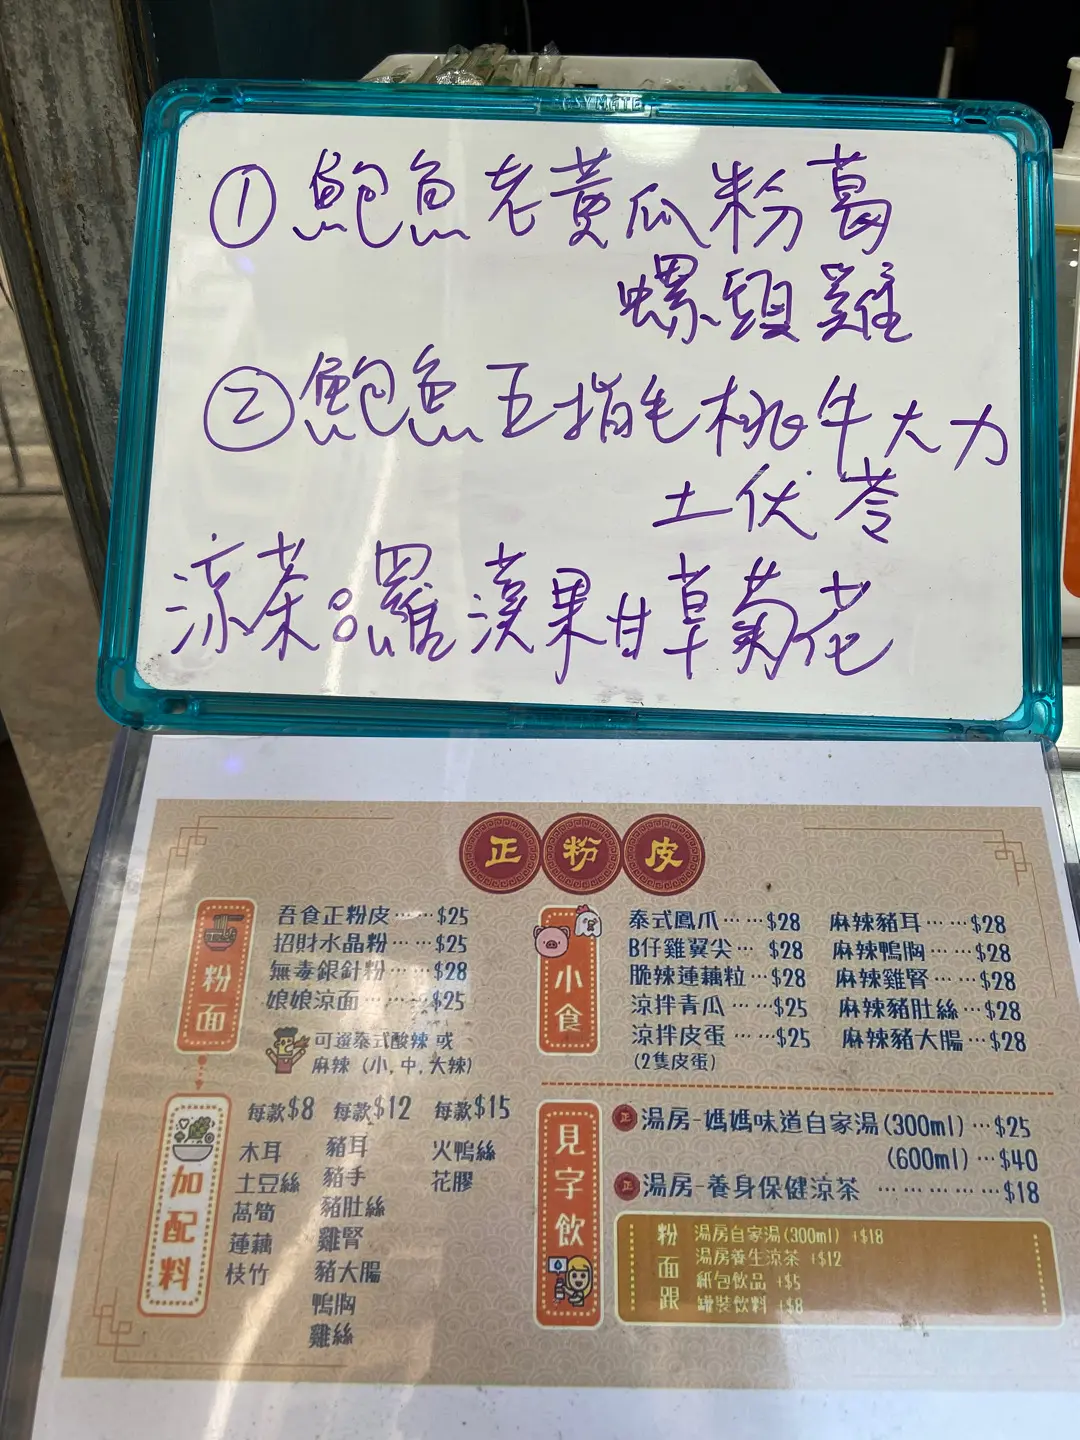 ESYMATE
①鮑魚老黃瓜粉葛
螺頭雞
②鮑魚五指毛桃牛大力
土伏苓
涼茶：羅漢果甘草菊花
正粉皮
粉面
吾食正粉皮……$25
招財水晶粉……$25
無毒銀針粉……$28
娘娘涼面……$25
可選泰式酸辣 或
麻辣 (小, 中, 大辣)
加配料
每款$8 每款$12 每款$15
木耳 豬耳 火鴨絲
土豆絲 豬手 花膠
萵筍 豬肚絲
蓮藕 雞腎
枝竹 豬大腸
鴨胸
雞絲
小食
泰式鳳爪……$28 麻辣豬耳……$28
B仔雞翼尖…$28 麻辣鴨胸…$28
脆辣蓮藕粒…$28 麻辣雞腎…$28
涼拌青瓜……$25 麻辣豬肚絲…$28
涼拌皮蛋……$25 麻辣豬大腸…$28
(2隻皮蛋)
見字飲
正 湯房-媽媽味道自家湯(300ml)…$25
(600ml)…$40
正 湯房-養身保健涼茶…………$18
粉面跟
湯房自家湯(300ml) +$18
湯房養生涼茶 +$12
紙包飲品 +$5
罐裝飲料 +$8